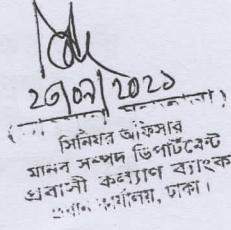 ২৩/০৯/২০২১
সিনিয়র অফিসার
মানব সম্পদ ডিপার্টমেন্ট
প্রবাসী কল্যাণ ব্যাংক
প্রধান কার্যালয়, ঢাকা।